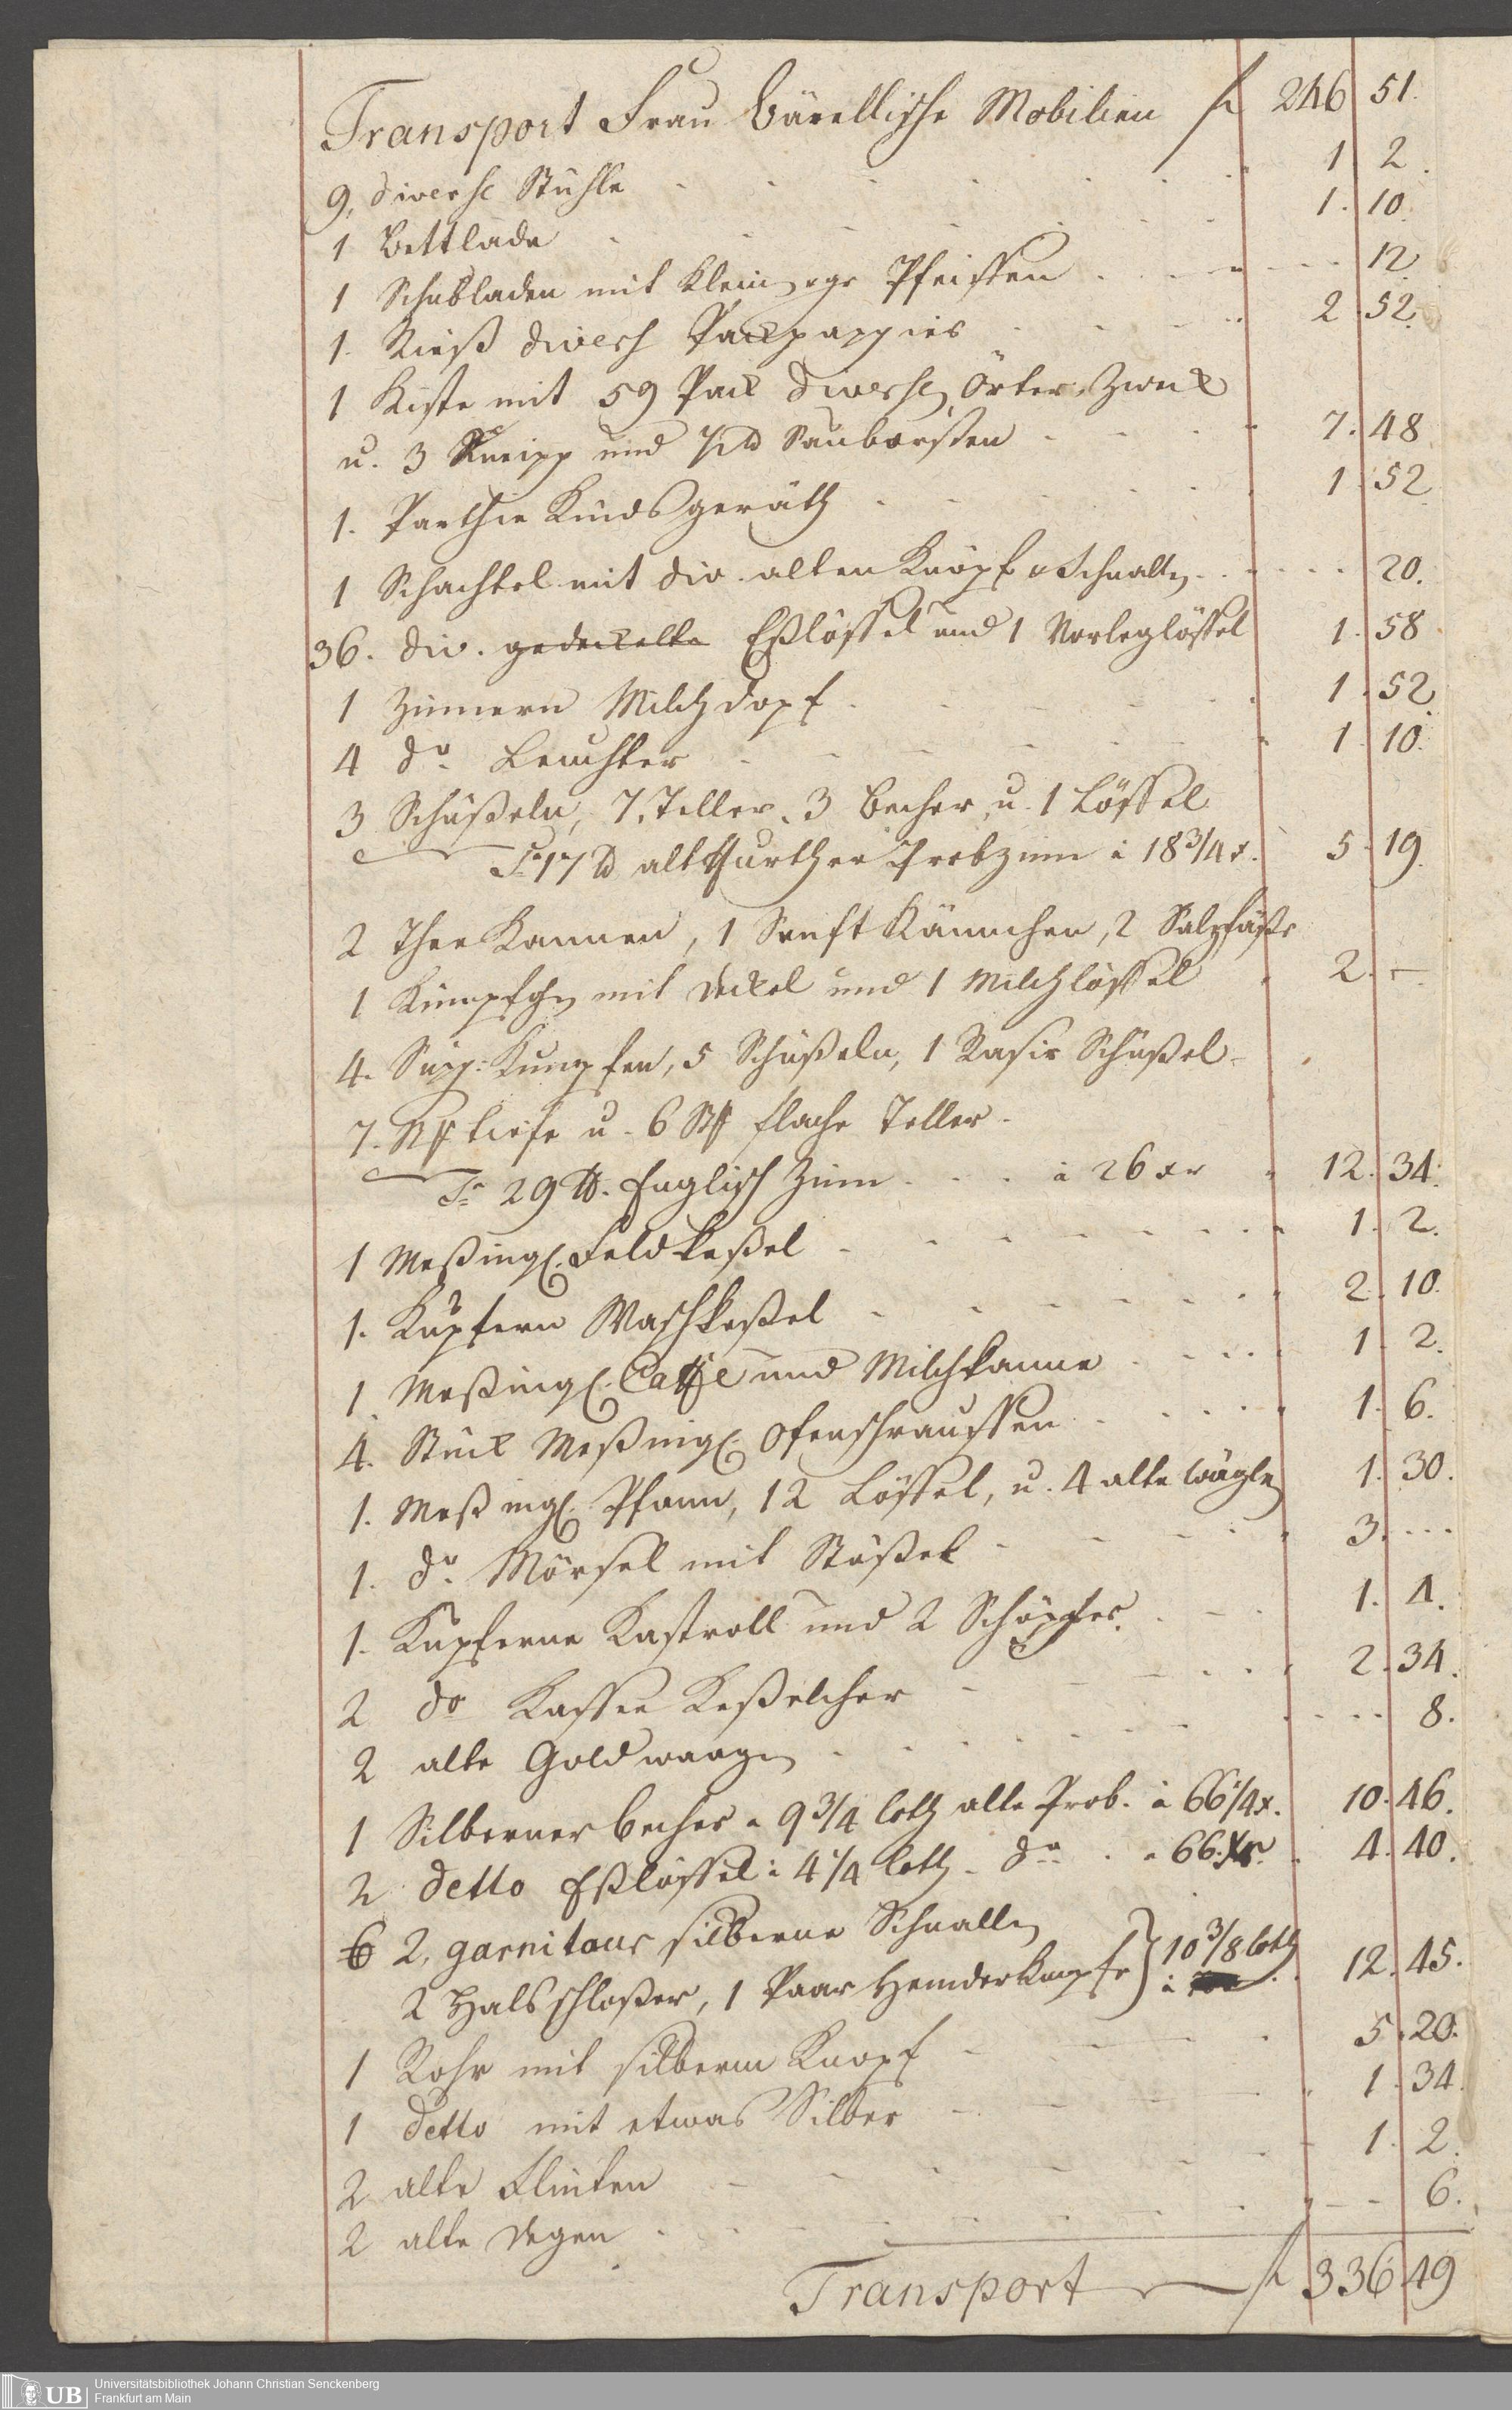 Transport Frau Bärellische Mobilien f 246 51.
9, diverse Stühle 1. 2.
1 Bettlade 1. 10.
1 Schubladen mit Klein Pfeiffen 12
1. Rieß divers Packpappier 2. 52.
1 Kiste mit 59 Pack diverse Örter Zweck
u. 3 Kneipp und Sauborsten 7. 48
1. Parthie Kindsgeräth 1. 52
1 Schachtel mit div. alten Knöpf u Schnallen 20.
36. div. gedeckelte Eßlöffel und 1 Vorleglöffel 1. 58
1 Zinnern Milchdopf 1. 52.
4 do. Leuchter 1. 10.
3 Schüßeln, 7. Teller. 3 Becher u. 1 Löffel
17 ℔ alt Probzinn à 18 3/4 x. 5. 19.
2 Thee Kannen, 1 Senft Kännchen, 2 Salzfäßr
1 Kümpfchen mit Deckel und 1 Milchlöffel 2. –
4. Supp: Kumpfen, 5 Schüßeln, 1 Rasir Schüßel
7. Stk tiefe u. 6 Stk flache Teller.
29 ℔. Englisch Zinn à 26 xr 12. 34.
1 Meßing. Feldkeßel 1. 2.
1. Kupfern Waschkeßel 2. 10.
1 Meßing. Caffe und Milchkanne 1. 2.
4. Stück Meßing. Ofenschrauffen 1. 6.
1. Meßing. Pfann, 12 Löffel, u. 4 alte Wägle 1. 30.
1. do. Mörsel mit Stößel 3. ...
1. Kupferne Kastroll und 2 Schöpfer. 1. 4.
2 do Kaffee Keßelcher 2. 34.
2 alte Goldwaagen 8.
1 Silberner Becher a 9 3/4 loth alte Prob. à 66 1/4 x. 10. 46.
2 detto Eßlöffel à 4 1/4 loth do. a 66. Xr. 4. 40.
6 2, garnitour silberne Schnallen
2 Halsschloßer, 1 Paar Hemderknopfe } 10 3/8 loth à 12. 45.
1 Rohr mit silbernm Knopf 5. 20.
1 detto mit etwas Silber 1. 34.
2 alte Flinten 1. 2.
2 alte Degen 6.
Transport f 336 49
UB Universitätsbibliothek Johann Christian Senckenberg
Frankfurt am Main